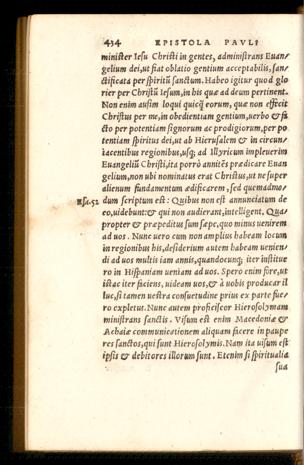 434 EPISTOLA PAVLI
minister Iesu Christi in gentes, administrans Euan-
gelium dei, ut fiat oblatio gentium acceptabilis, san-
ctificata per spiritũ sanctum. Habeo igitur quod glo
rier per Christũ Iesum, in his quæ ad deum pertinent.
Non enim ausim loqui quicq̃ eorum, quæ non effecit
Christus per me, in obedientiam gentium, uerbo & fa
cto per potentiam signorum ac prodigiorum, per po
tentiam spiritus dei, ut ab Hierusalem & in circum
iacentibus regionibus, usq; ad Illyricum impleuerim
Euangeliũ Christi, ita porrò annitẽs prædicare Euan
gelium, non ubi nominatus erat Christus, ut ne super
alienum fundamentum ædificarem, sed quemadmo-
Esa. 52 dum scriptum est: Quibus non est annunciatum de
eo, uidebunt: & qui non audierant, intelligent. Qua
propter & præpeditus sum sæpe, quo minus uenirem
ad uos. Nunc uero cum non amplius habeam locum
in regionibus his, desiderium autem habeam uenien
di ad uos multis iam annis, quandocunq; iter institue
ro in Hispaniam ueniam ad uos. Spero enim fore, ut
istac iter faciens, uideam uos, & à uobis producar il
luc, si tamen uestra consuetudine prius ex parte fue-
ro expletus. Nunc autem proficiscor Hierosolymam
ministrans sanctis. Visum est enim Macedoniæ &
Achaiæ communicationem aliquam facere in paupe
res sanctos, qui sunt Hierosolymis. Nam ita uisum est
ipsis & debitores illorum sunt. Etenim si spiritualia
sua